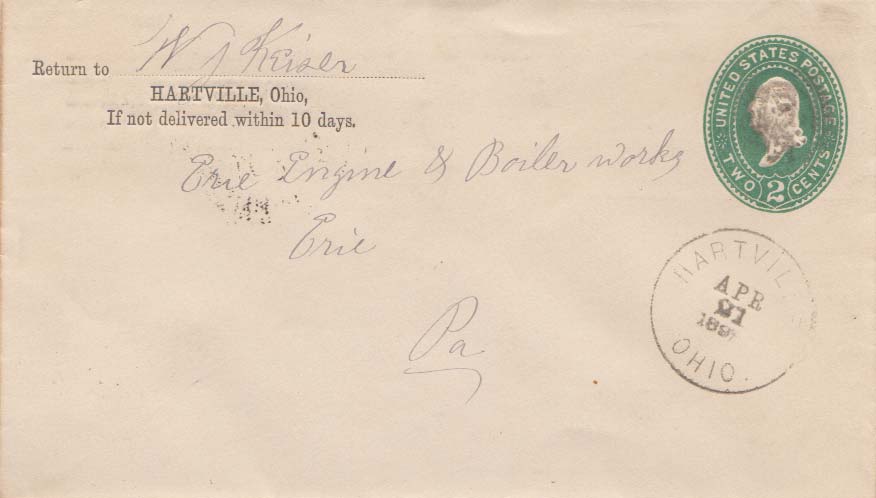 Return to W J Keiser
HARTVILLE, Ohio,
If not delivered within 10 days.
UNITED STATES POSTAGE
TWO 2 CENTS
Erie Engine & Boiler works
Erie
Pa
HARTVILLE
APR
21
OHIO.